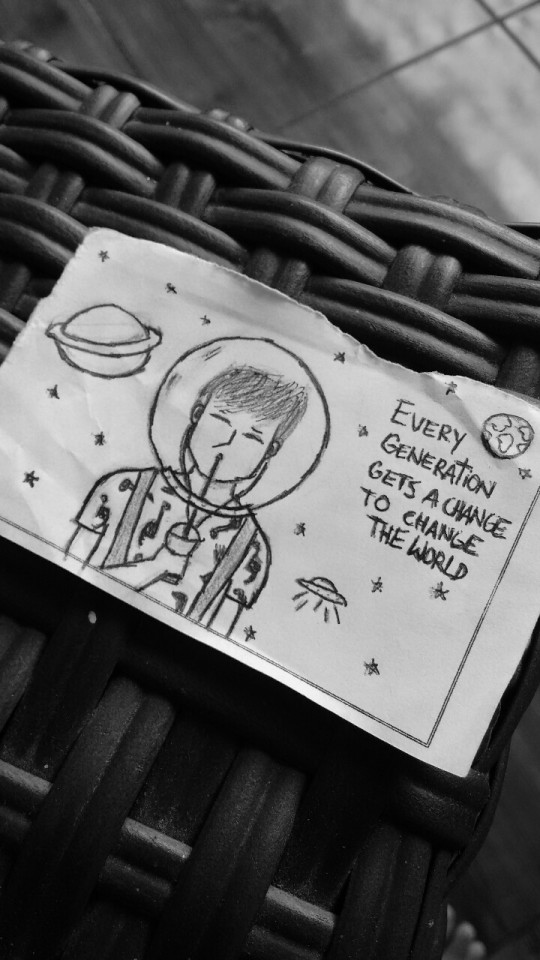 EVERY
GENERATION
GETS A CHANGE
TO CHANGE
THE WORLD